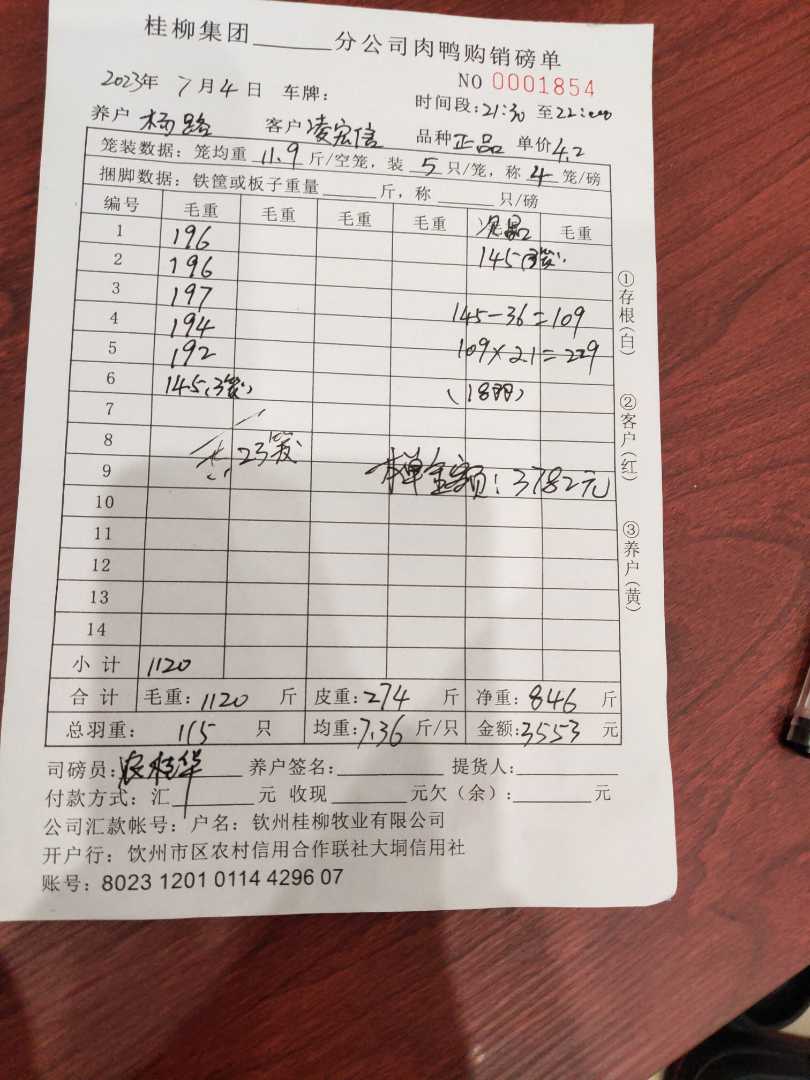 桂柳集团______分公司肉鸭购销磅单
NO 0001854
2023年 7月4日 车牌:
时间段:21:30 至22:00
养户 杨路 客户 凌宏信 品种 正品 单价4.2
笼装数据：笼均重 11.9 斤/空笼，装 5 只/笼，称 4 笼/磅
捆脚数据：铁筐或板子重量______斤，称______只/磅
编号 毛重 毛重 毛重 毛重 次品 毛重
1 196
2 196 145(3笼)
3 197
4 194 145-36=109
5 192 109×2.1=229
6 145(3笼) (18羽)
7
8 23笼
9 本单金额:3782元
10
11
12
13
14
小计 1120
合计 毛重:1120 斤 皮重:274 斤 净重:846 斤
总羽重: 115 只 均重:7.36 斤/只 金额:3553 元
司磅员:农桂华 养户签名:______ 提货人:______
付款方式: 汇______元 收现______元欠(余):______元
公司汇款帐号：户名：钦州桂柳牧业有限公司
开户行：饮州市区农村信用合作联社大垌信用社
账号：8023 1201 0114 4296 07
①存根(白)
②客户(红)
③养户(黄)